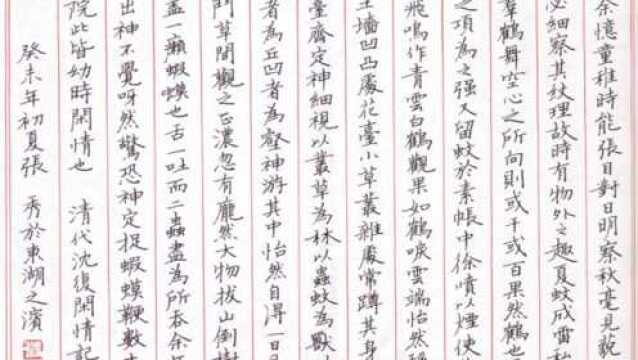 余憶童稚時能張目對日明察秋毫見藐
必細察其紋理故時有物外之趣夏蚊成雷
羣鶴舞空心之所向則或千或百果然鶴也
之項為之强又留蚊於素帳中徐噴以煙使
飛鳴作青雲白鶴觀果如鶴唳雲端怡然
土墻凹凸處花臺小草叢雜處常蹲其身
臺齊定神細視以叢草為林以蟲蚊為獸
者為丘凹者為壑神游其中怡然自得一日
鬥草間觀之正濃忽有龐然大物拔山倒樹
盡一癩蝦蟆也舌一吐而二蟲盡為所吞余
出神不覺呀然驚恐神定捉蝦蟆鞭數
院此皆幼時閑情也 清代沈復閑情記
癸未年初夏張 秀於東湖之濱